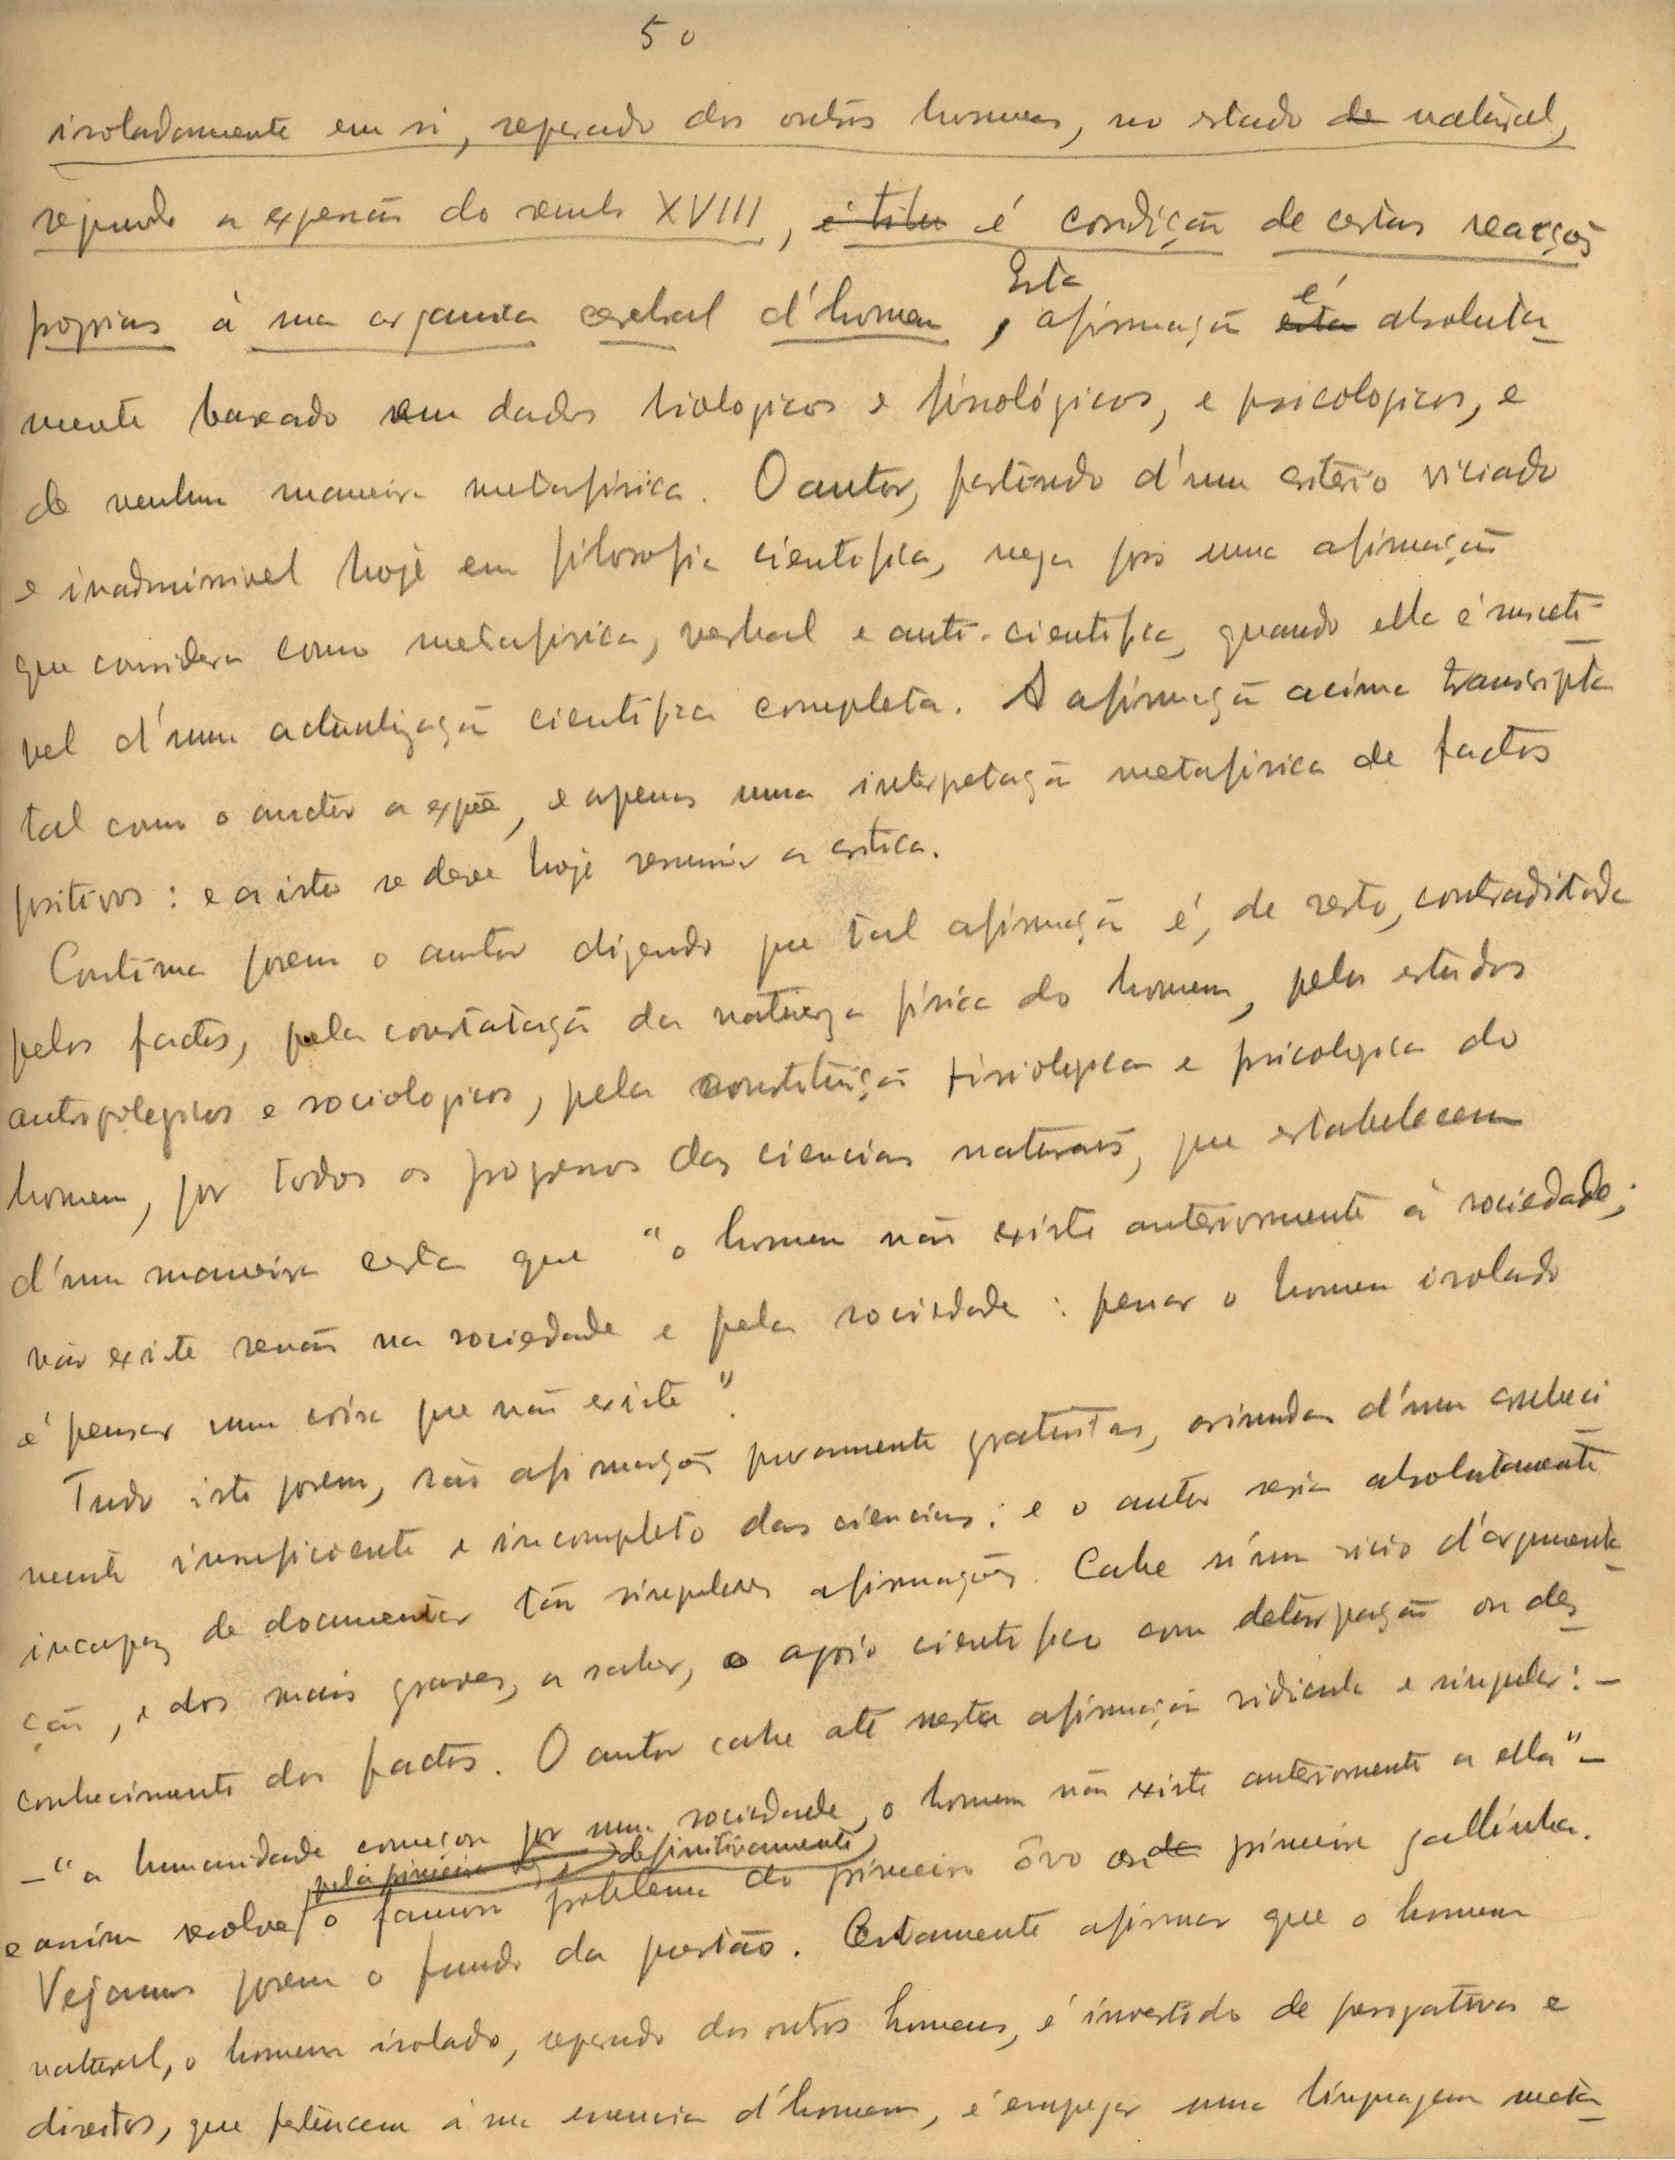 50
isoladamente em si, separado dos outros homens, no estado de natural,
segundo a expressão do seculo XVIII, é titu é condição de certas reacções
proprias á sua organisa cerebral d'homem, Esta afirmação esta é absoluta-
mente baseado em dados biologicos e fisiológicos, e psicologicos, e
de nenhuma maneira metafisica. O autor, partindo d'um criterio viciado
e inadmissivel hoje em filosofia cientifica, nega pois uma afirmação
que considera como metafisica, verbal e anti-cientifica, quando ella é susceti-
vel d'uma actualização cientifica completa. A afirmação acima transcripta
tal como o auctor a expõe, e apenas uma interpretação metafisica de factos
positivos: e a isto se deve hoje resumir a critica.
Continua porem o autor dizendo que tal afirmação é, de resto, contraditada
pelos factos, pela constatação da natureza fisica do homem, pelos estudos
antropologicos e sociologicos, pela constituição fisiologica e psicologica do
homem, por todos os progressos das ciencias naturaes, que estabelecem
d'uma maneira certa que "o homem não existe anteriormente á sociedade;
não existe senão na sociedade e pela sociedade: pensar o homem isolado
é pensar uma coisa que não existe".
Tudo isto porem, são afirmações puramente gratuitas, oriundas d'um conheci-
mento insuficiente e incompleto das ciencias: e o autor seria absolutamente
incapaz de documentar tão singulares afirmações. Cahe n'um vicio d'argumenta-
ção, e dos mais graves, a saber, o apoio cientifico com deturpação ou des-
conhecimento dos factos. O autor cahe até nesta afirmação ridicula e singular: -
- "a humanidade começou por uma sociedade, o homem não existe anteriormente a ella" -
e assim resolve pela primeira vez e definitivamente o famoso problema do primeiro ôvo ou da primeira gallinha.
Vejamos porem o fundo da questão. Certamente afirmar que o homem
natural, o homem isolado, separado dos outros homens, é investido de prerogativas e
direitos, que pertencem á sua essencia d'homem, é empregar uma linguagem meta-